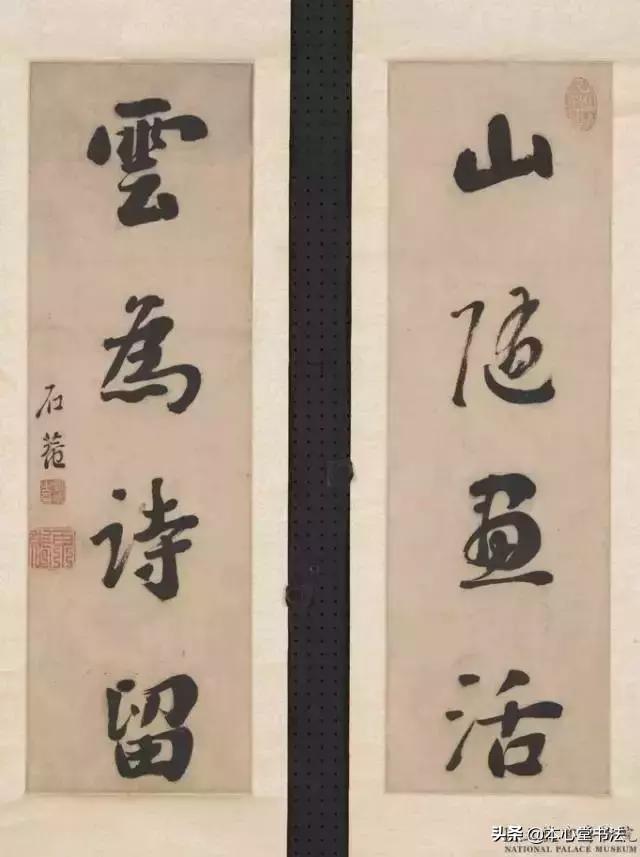 山隨畫活
雲為詩留
石菴
头条 @本心堂书法
NATIONAL PALACE MUSEUM